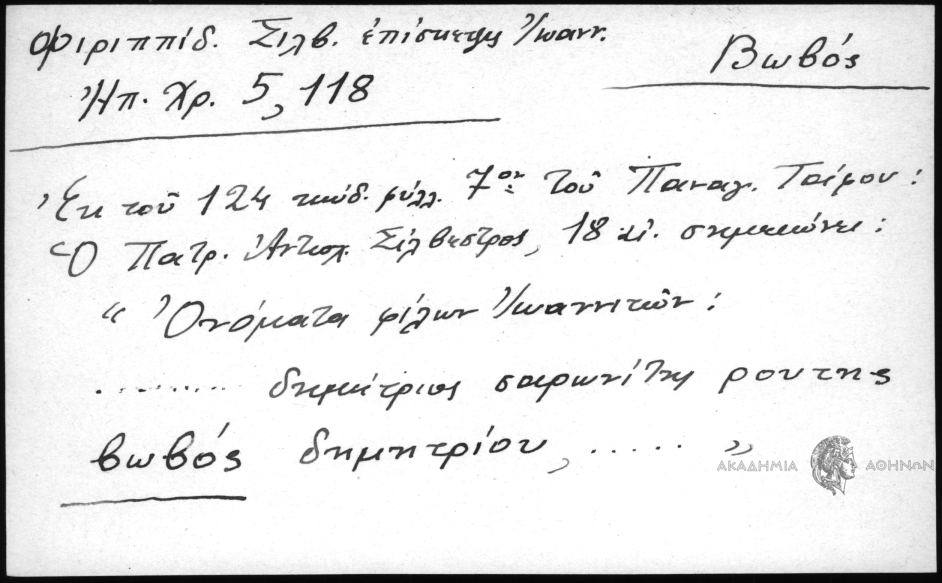 Φιριππίδ. Σιλβ. ἐπίσκεψις Ἰωανν.
Βωβός
Ἠπ. Χρ. 5, 118
Ἐκ τοῦ 124 κώδ. φύλλ. 7ον τοῦ Παναγ. Τάφου:
Ὁ Πατρ. Ἀντιοχ. Σίλβεστρος, 18 αἰ. σημειώνει:
“ Ὀνόματα φίλων Ἰωαννιτῶν:
.......... δημήτριος σαρωνίτης ρουτης
βωβός δημητρίου, ..... ”
ΑΚΑΔΗΜΙΑ ΑΘΗΝΩΝ